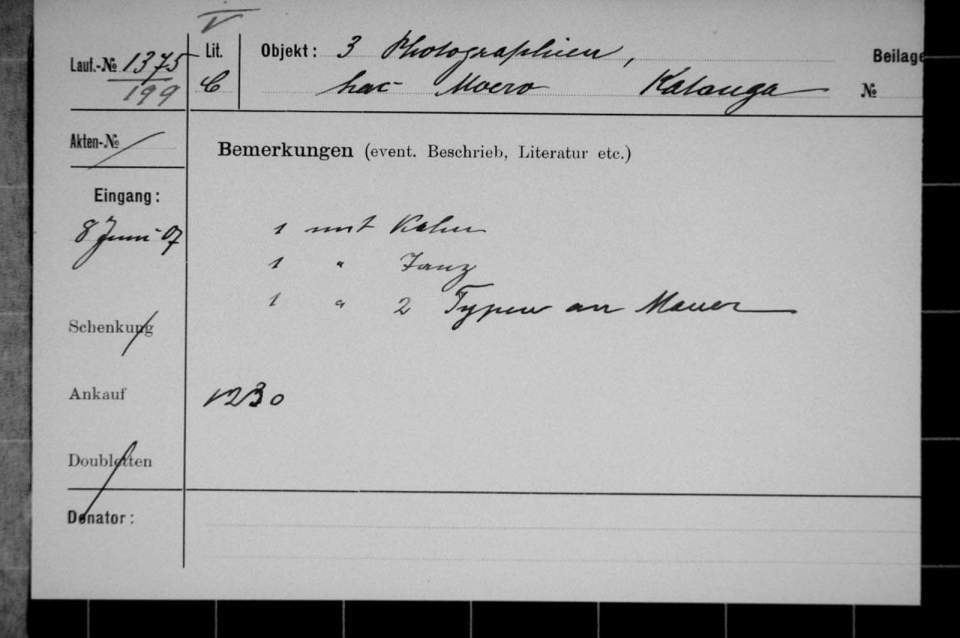 V
Lauf.-№ 1375 Lit. Objekt: 3 Photographien, Beilage
199 C Lac Moero Katanga №
Akten-№
Bemerkungen (event. Beschrieb, Literatur etc.)
Eingang:
8 Juni 07
1 mit Kahn
1 " Tanz
1 " 2 Typen an Mauer
Schenkung
Ankauf 1230
Doubletten
Donator: